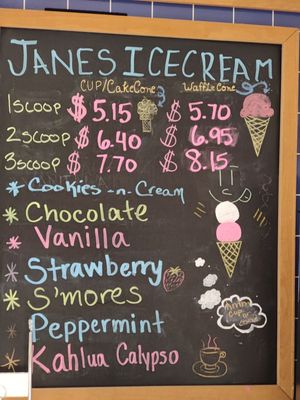 JANES ICECREAM
CUP/CakeCone Waffle Cone
1 scoop $5.15 $5.70
2 scoop $6.40 $6.95
3 scoop $7.70 $8.15
* Cookies-n-Cream
* Chocolate
* Vanilla
* Strawberry
* S'mores
* Peppermint
* Kahlua Calypso
cup or